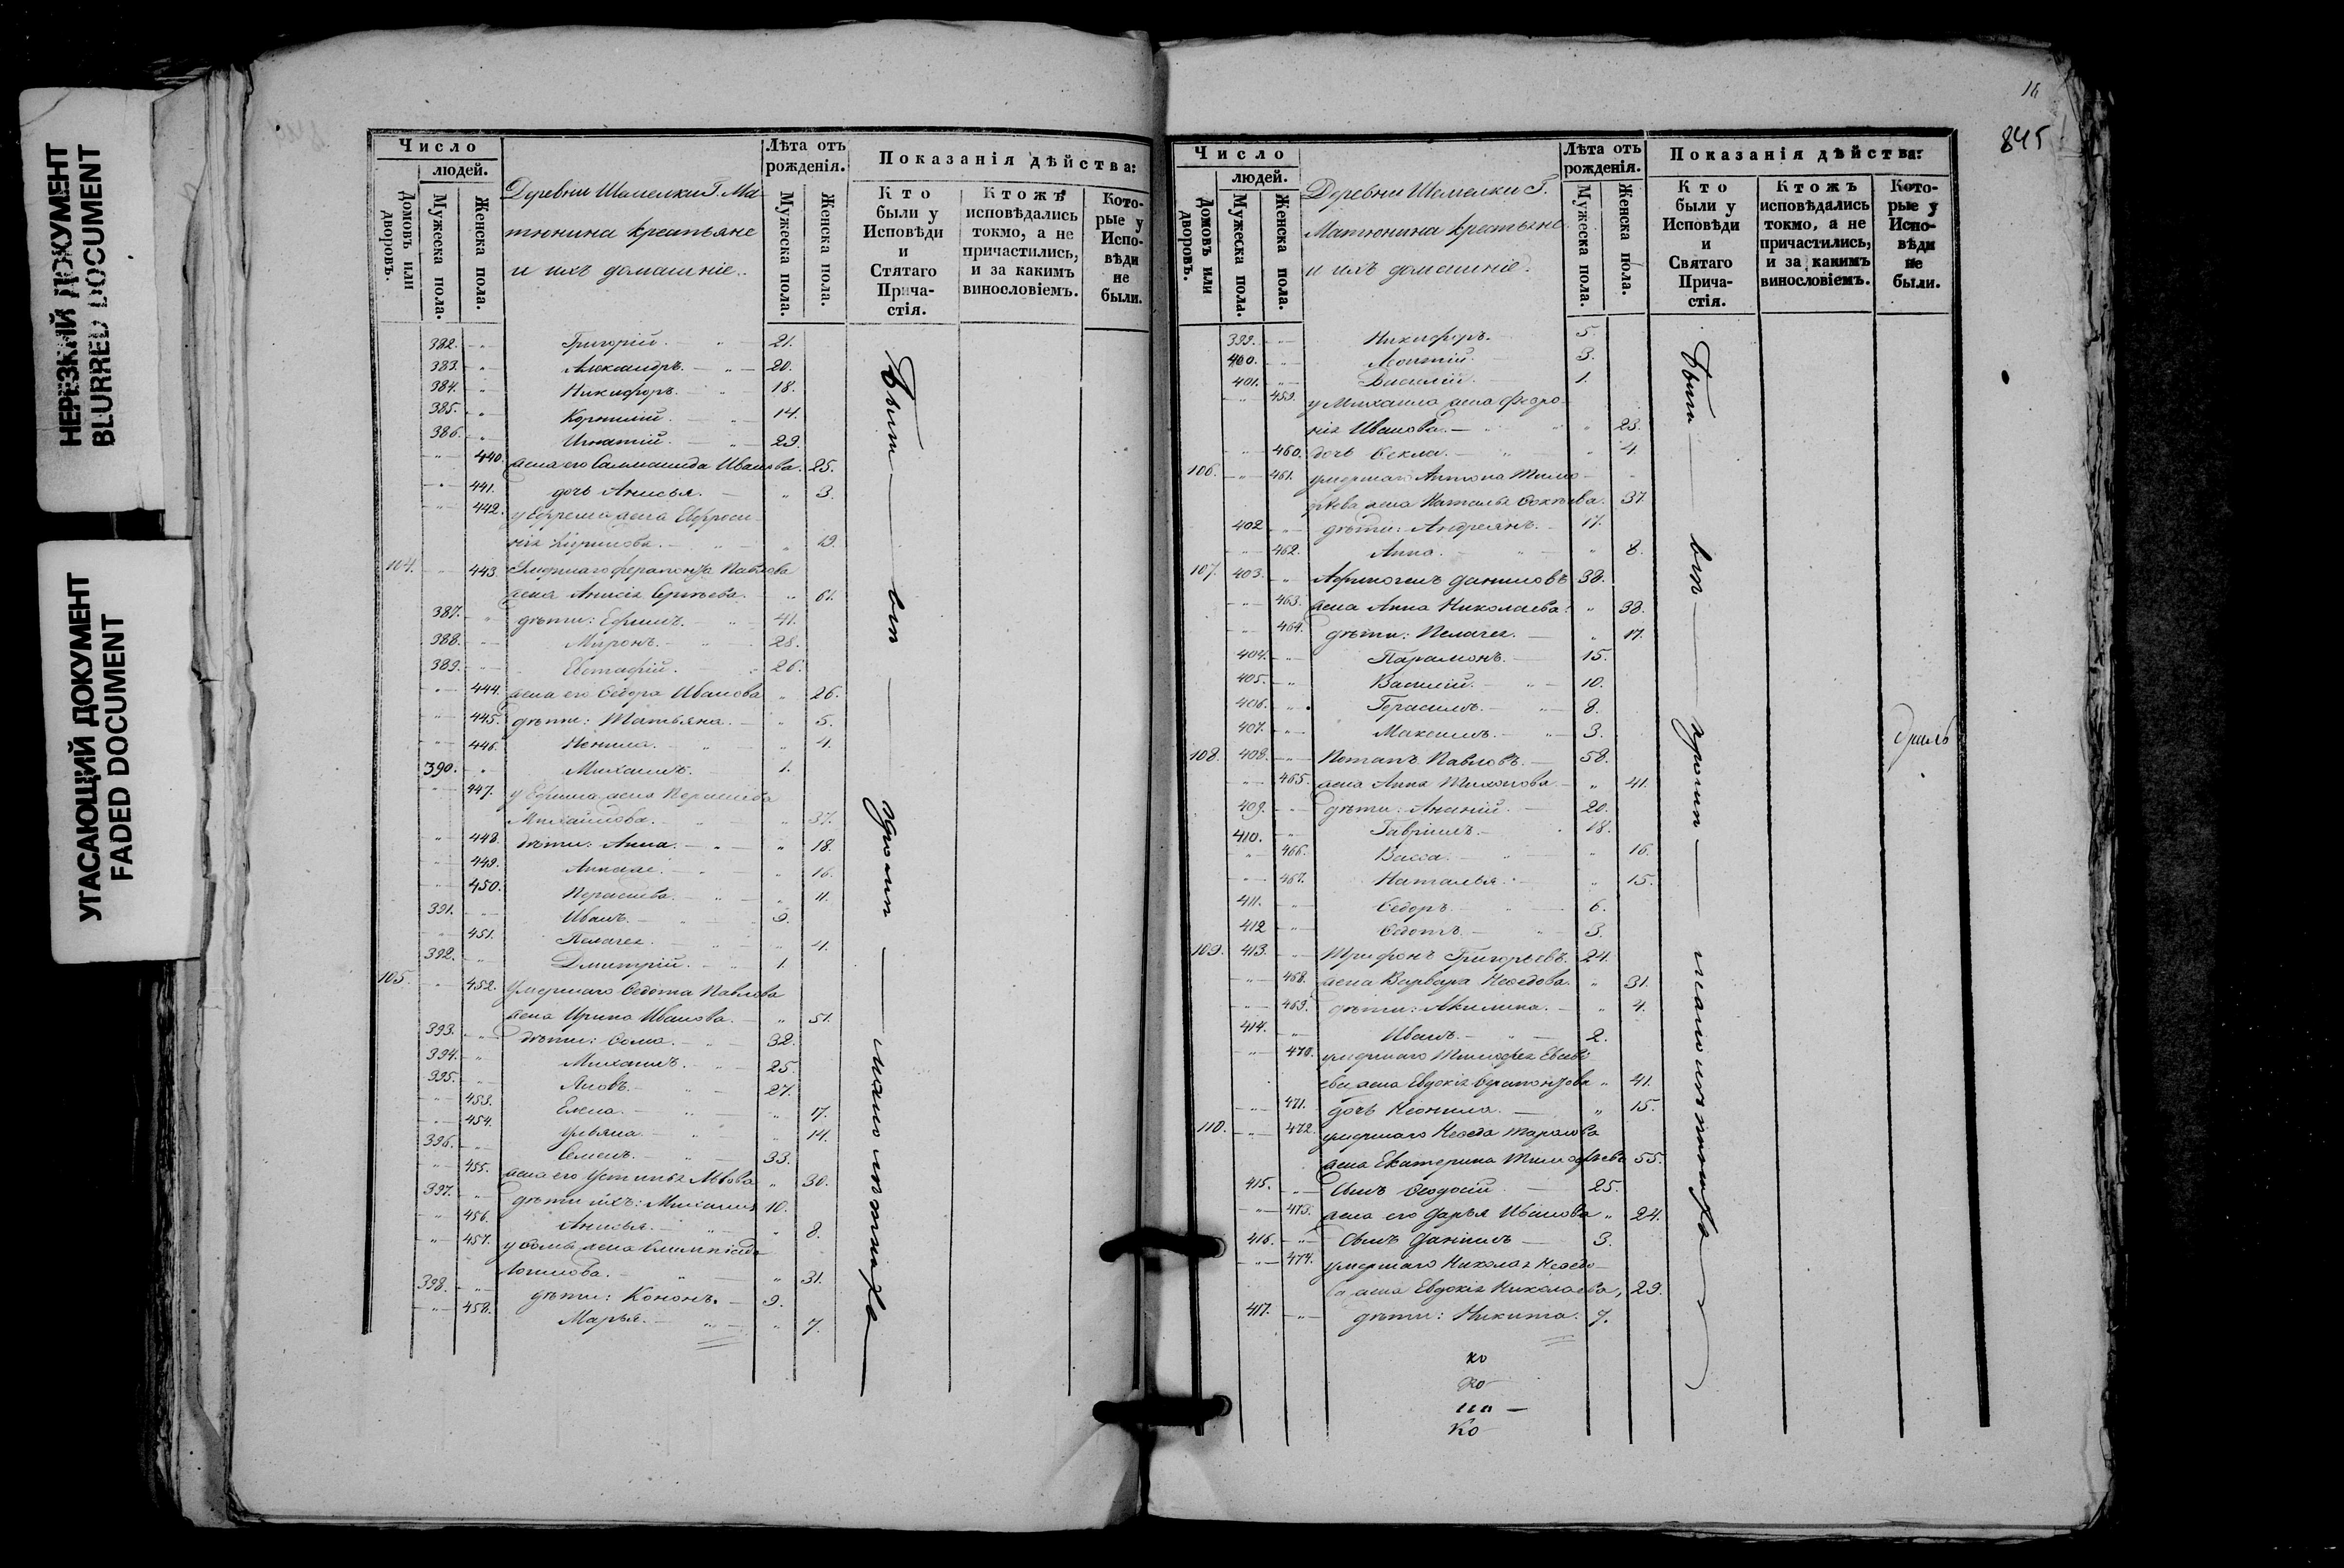 НЕРЕЗКИЙ ДОКУМЕНТ
BLURRED DOCUMENT
УГАСАЮЩИЙ ДОКУМЕНТ
FADED DOCUMENT
Число
людей.
Домовъ или дворовъ.
Мужеска пола.
Женска пола.
Деревни Шамелки Г. Ма-
тюнина крестьяне
и ихъ домашніе.
Лѣта отъ рожденія.
Мужеска пола.
Женска пола.
Показанія дѣйства:
Кто были у Исповѣди и Стятаго Прича-стія.
Ктожъ исповѣдались токмо, а не причастились, и за какимъ винословіемъ.
Кото-рые у Испо-вѣди не были.
382. Григорій. 21.
383. Александръ. 20.
384. Никифоръ. 18.
385. Корнилій. 14.
386. Игнатій. 29.
440. жена его Саломанида Иванова. 25.
441. дочь Анисья. 3.
442. у Ефрема жена Евфроси-
нія Кирилова. 19.
104. 443. Умершаго Ферапонта Павлова
жена Анисія Сергѣева. 61.
387. дѣти: Ефимъ. 41.
388. Миронъ. 28.
389. Евстафій. 26.
444. жена его Ѳедора Иванова 26.
445. дѣти: Татьяна. 5.
446. Ненила. 4.
390. Михаилъ. 1.
447. у Ефима жена Парасковья
Михайлова. 37.
448. дѣти: Анна. 18.
449. Анна же. 16.
450. Параскева. 11.
391. Иванъ. 9.
451. Пелагея. 4.
392. Дмитрій. 1.
105. 452. Умершаго Ѳедота Павлова
жена Ирина Иванова. 51.
393. дѣти: Ѳома. 32.
394. Михаилъ. 25.
395. Яковъ. 27.
453. Елена. 17.
454. Ульяна. 14.
396. Семенъ. 33.
455. жена его Устинья Львова 30.
397. дѣти ихъ: Михаилъ 10.
456. Анисья. 8.
457. у Ѳомы жена Олимпіада
31.
398. дѣти: Кононъ. 9.
458. Марья. 7.
Были вси кромѣ малолѣтнихъ
18
845
Число
людей.
Домовъ или дворовъ.
Мужеска пола.
Женска пола.
Деревни Шамелки Г.
Матюнина крестьяне
и ихъ домашніе.
Лѣта отъ рожденія.
Мужеска пола.
Женска пола.
Показанія дѣйства:
Кто были у Исповѣди и Святаго Прича-стія.
Ктожъ исповѣдались токмо, а не причастились, и за какимъ винословіемъ.
Кото-рые у Испо-вѣди не были.
399. Никифоръ. 5.
400. Леонтій. 3.
401. Василій. 1.
459. у Михаила жена Февро-
нія Иванова. 23.
460. дочь Ѳекла. 4.
106. 461. умершаго Антона Тимо-
фѣева жена Наталья Ѳокѣева. 37
402 дѣти: Андреянъ. 17.
462. Анна. 8.
107. 403. Афиногенъ Даниловъ 38.
463. жена Анна Николаева. 38.
464. дѣти: Пелагея. 17.
404. Парамонъ. 15.
405. Василій. 10.
406. Герасимъ. 8.
407. Максимъ. 3.
108. 408. Потапъ Павловъ. 58.
465. жена Анна Тихонова 41.
409. дѣти: Ананій. 20.
410. Гавріилъ. 18.
466. Васса. 16.
467. Наталья. 15.
411. Ѳедоръ. 6.
412 Ѳедотъ. 3.
109. 413. Трифонъ Григорьевъ. 24.
468. жена Варвара Неѳедова. 31.
469. дѣти: Акилина. 4.
414. Иванъ. 2.
470. умершаго Тимофея Евсѣ-
ева жена Евдокія Ферапонтова 41.
471. дочь Неонила. 15.
110. 472. умершаго Неѳеда Тарасова
жена Екатерина Тимофѣева 55.
415. Сынъ Ѳеодосій 25.
473. жена его Дарья Иванова 24.
416. Сынъ Даніилъ 3.
474. умершаго Николая Неѳедо-
ва жена Евдокія Николаева, 29.
417. дѣти: Никита. 7.
Были вси кромѣ малолѣтнихъ
ко
ко
Ко